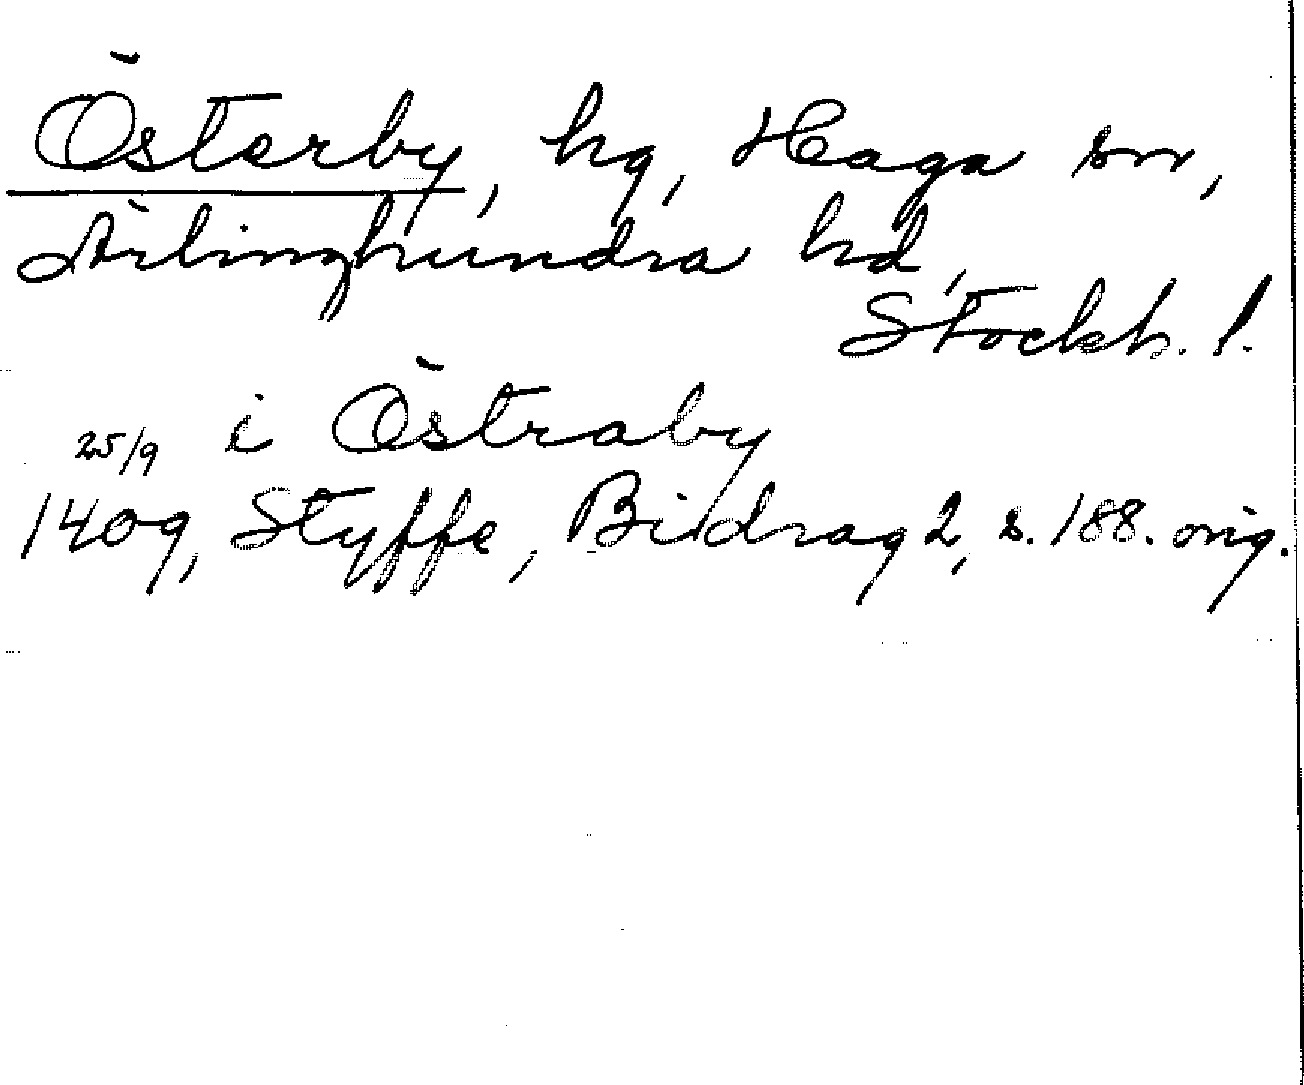 Österby, hg, Haga sn,
Ärlinghundra hd,
Stockh. l.
i Östraby
25/9
1409, Styffe, Bidrag 2, s. 188. orig.